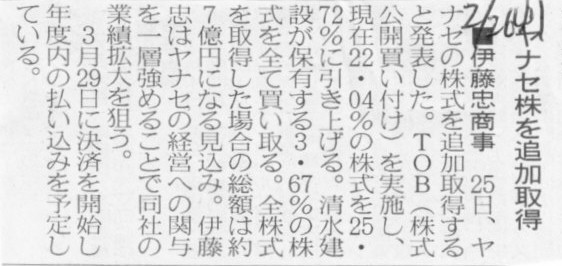 ヤナセ株を追加取得
伊藤忠商事　25日、ヤ
ナセの株式を追加取得する
と発表した。TOB（株式
公開買い付け）を実施し、
現在22・04％の株式を25・
72％に引き上げる。清水建
設が保有する3・67％の株
式を全て買い取る。全株式
を取得した場合の総額は約
7億円になる見込み。伊藤
忠はヤナセの経営への関与
を一層強めることで同社の
業績拡大を狙う。
3月29日に決済を開始し
年度内の払い込みを予定し
ている。